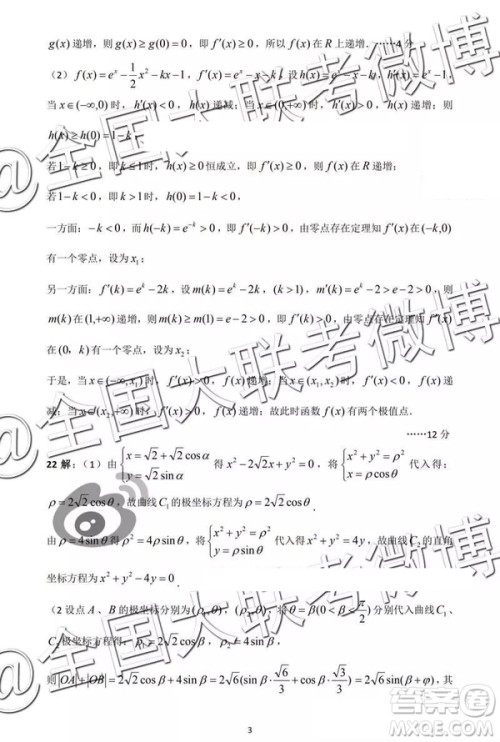 g(x)递增，则 g(x)≥g(0)=0，即 f'(x)≥0，所以 f(x)在 R 上递增. ……4分
（2） f(x)=e^x−1/2x²−kx−1， f'(x)=e^x−x−k，设 h(x)=e^x−x−k， h'(x)=e^x−1.
当 x∈(−∞,0)时， h'(x)<0， h(x)递减；当 x∈(0,+∞)时， h'(x)>0， h(x)递增；则
h(x)≥h(0)=1−k，
若1−k≥0，即 k≤1时， h(x)≥0恒成立，即 f'(x)≥0，所以 f(x)在 R 递增；
若1−k<0，即 k>1时， h(0)=1−k<0，
一方面：−k<0，而 h(−k)=e^{−k}>0，即 f'(−k)>0，由零点存在定理知 f'(x)在(−k,0)
有一个零点，设为 x₁；
另一方面： f'(k)=e^k−2k，设 m(k)=e^k−2k，(k>1)， m'(k)=e^k−2>e−2>0，则
m(k)在(1,+∞)递增，则 m(k)≥m(1)=e−2>0，即 f'(k)>0，由零点存在定理知 f'(x)
在(0，k)有一个零点，设为 x₂；
于是，当 x∈(−∞,x₁)时， f'(x)>0， f(x)递增；当 x∈(x₁,x₂)时， f'(x)<0， f(x)递
减；当 x∈(x₂,+∞)时， f'(x)>0， f(x)递增；故此时函数 f(x)有两个极值点.
……12 分
22 解：（1）由{x=√2+√2cosα y=√2sinα 得 x²−2√2x+y²=0，将{x²+y²=ρ² x=ρcosθ 代入得：
ρ=2√2cosθ，故曲线 C₁的极坐标方程为 ρ=2√2cosθ.
由 ρ=4sinθ得 ρ²=4ρsinθ，将{x²+y²=ρ² y=ρsinθ 代入得 x²+y²=4y，故曲线 C₂的直角
坐标方程为 x²+y²−4y=0.
（2 设点 A、B 的极坐标分别为(ρ₁,θ)，(ρ₂,θ)，将 θ=β(0<β<π/2)分别代入曲线 C₁、
C₂极坐标方程得：ρ₁=2√2cosβ，ρ₂=4sinβ，
则|OA|+|OB|=2√2cosβ+4sinβ=2√6(sinβ·√6/3+cosβ·√3/3)=2√6sin(β+φ)，其
3
@全国大联考微博
@全国大联考微博
@全国大联考微博
答案圈
MXQE.COM